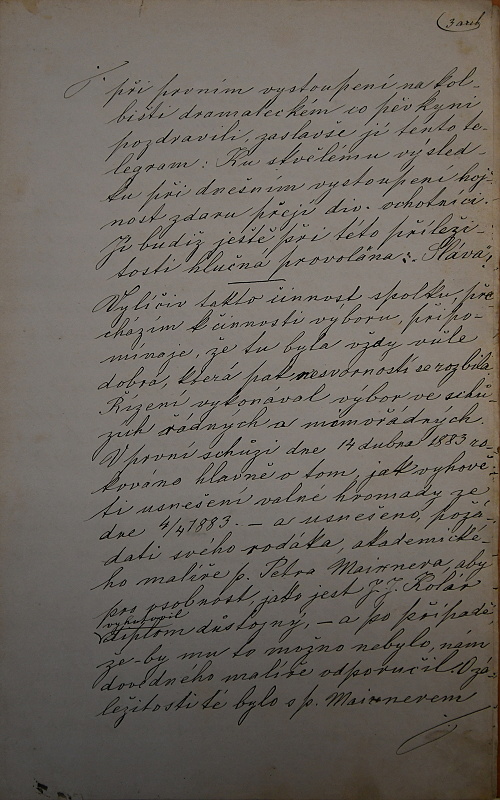 3 arch
při prvním vystoupení na kol-
bišti dramatickém co pěvkyni
pozdravili, zaslavše jí tento te-
legram: Ku skvělému výsled-
ku při dnešním vystoupení hoj-
nost zdaru přejí div. ochotníci.
Jí budiž ještě při této příleži-
tosti hlučná provolána: „Sláva“!
Vylíčiv takto činnost spolku, pře-
cházím k činnosti výboru, připo-
mínaje, že tu byla vždy vůle
dobrá, která pak nesvorností se rozbila.
Řízení vykonával výbor ve schů-
zích řádných a mimořádných.
V první schůzi dne 14 dubna 1883 ro-
kováno hlavně o tom, jak vyhově-
ti usnešení valné hromady ze
dne 4/4 1883. – a usnešeno, požá-
dati svého rodáka, akademické-
ho malíře p. Petra Maixnera, aby
pro osobnost, jako jest J. J. Kolár
vyhotovil
diplom důstojný, – a po případě,
že-by mu to možno nebylo, nám
dovedného malíře odporučil. V zá-
ležitosti té bylo s p. Maixnerem